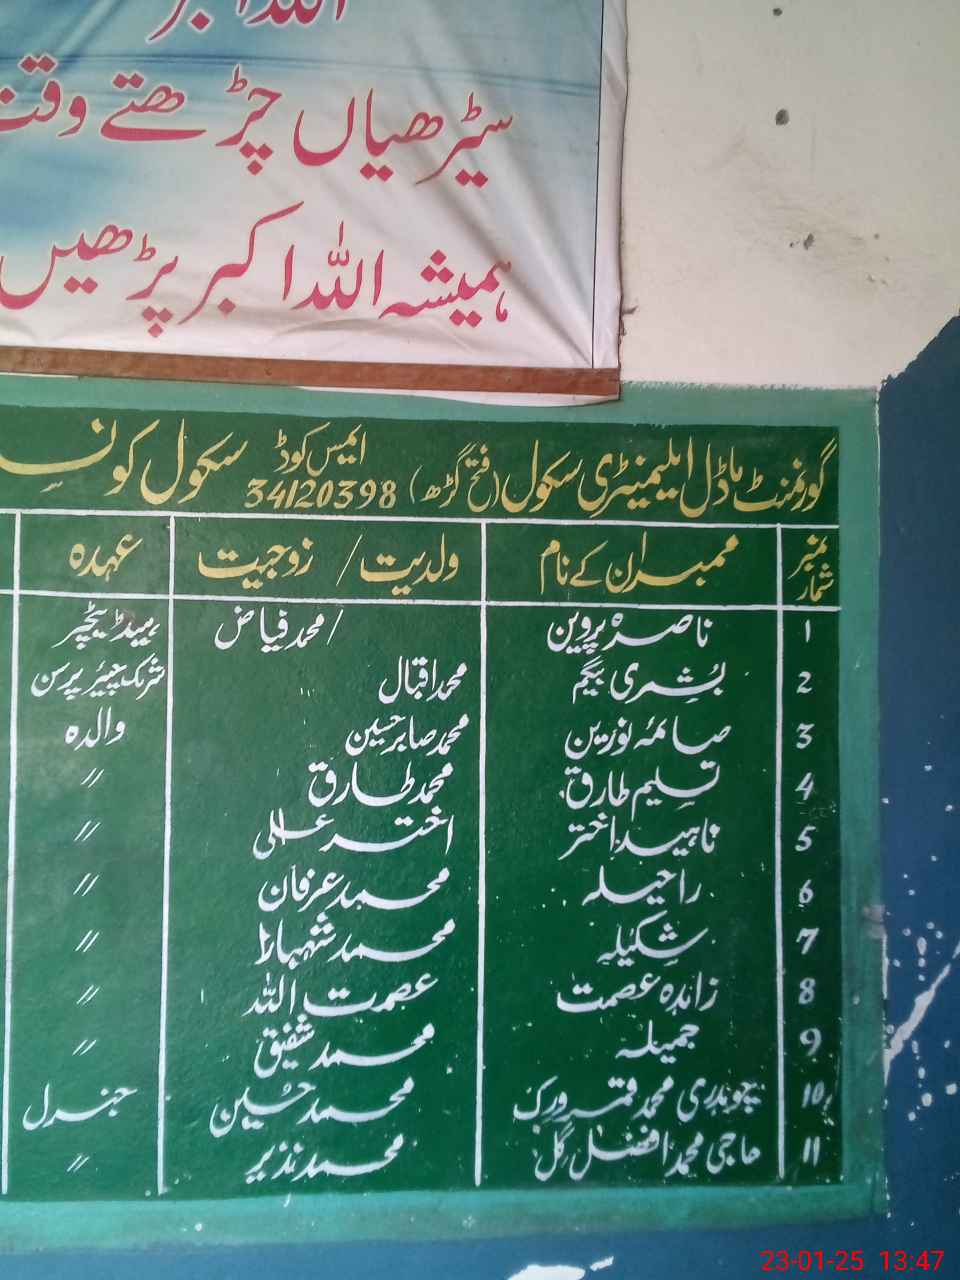 اللہ اکبر
سیڑھیاں چڑھتے وقت
ہمیشہ اللہ اکبر پڑھیں
گورنمنٹ ماڈل ایلیمنٹری سکول (فتح گڑھ) ایمس کوڈ 34120398 سکول کونس
نمبر شمار ممبران کے نام ولدیت / زوجیت عہدہ
1 ناصرہ پروین / محمد فیاض ہیڈ ٹیچر
2 بُشریٰ بیگم محمد اقبال شریک چیئر پرسن
3 صائمہ نورین محمد صابر حسین والدہ
4 تسلیم طارق محمد طارق 〃
5 ناہید اختر اختر علی 〃
6 راحیلہ محمد عرفان 〃
7 شکیلہ محمد شہباز 〃
8 زاہدہ عصمت عصمت اللہ 〃
9 جمیلہ محمد شفیق 〃
10 چوہدری محمد قمر ورک محمد حُسین جنرل
11 حاجی محمد افضل گِل محمد نذیر 〃
23-01-25 13:47